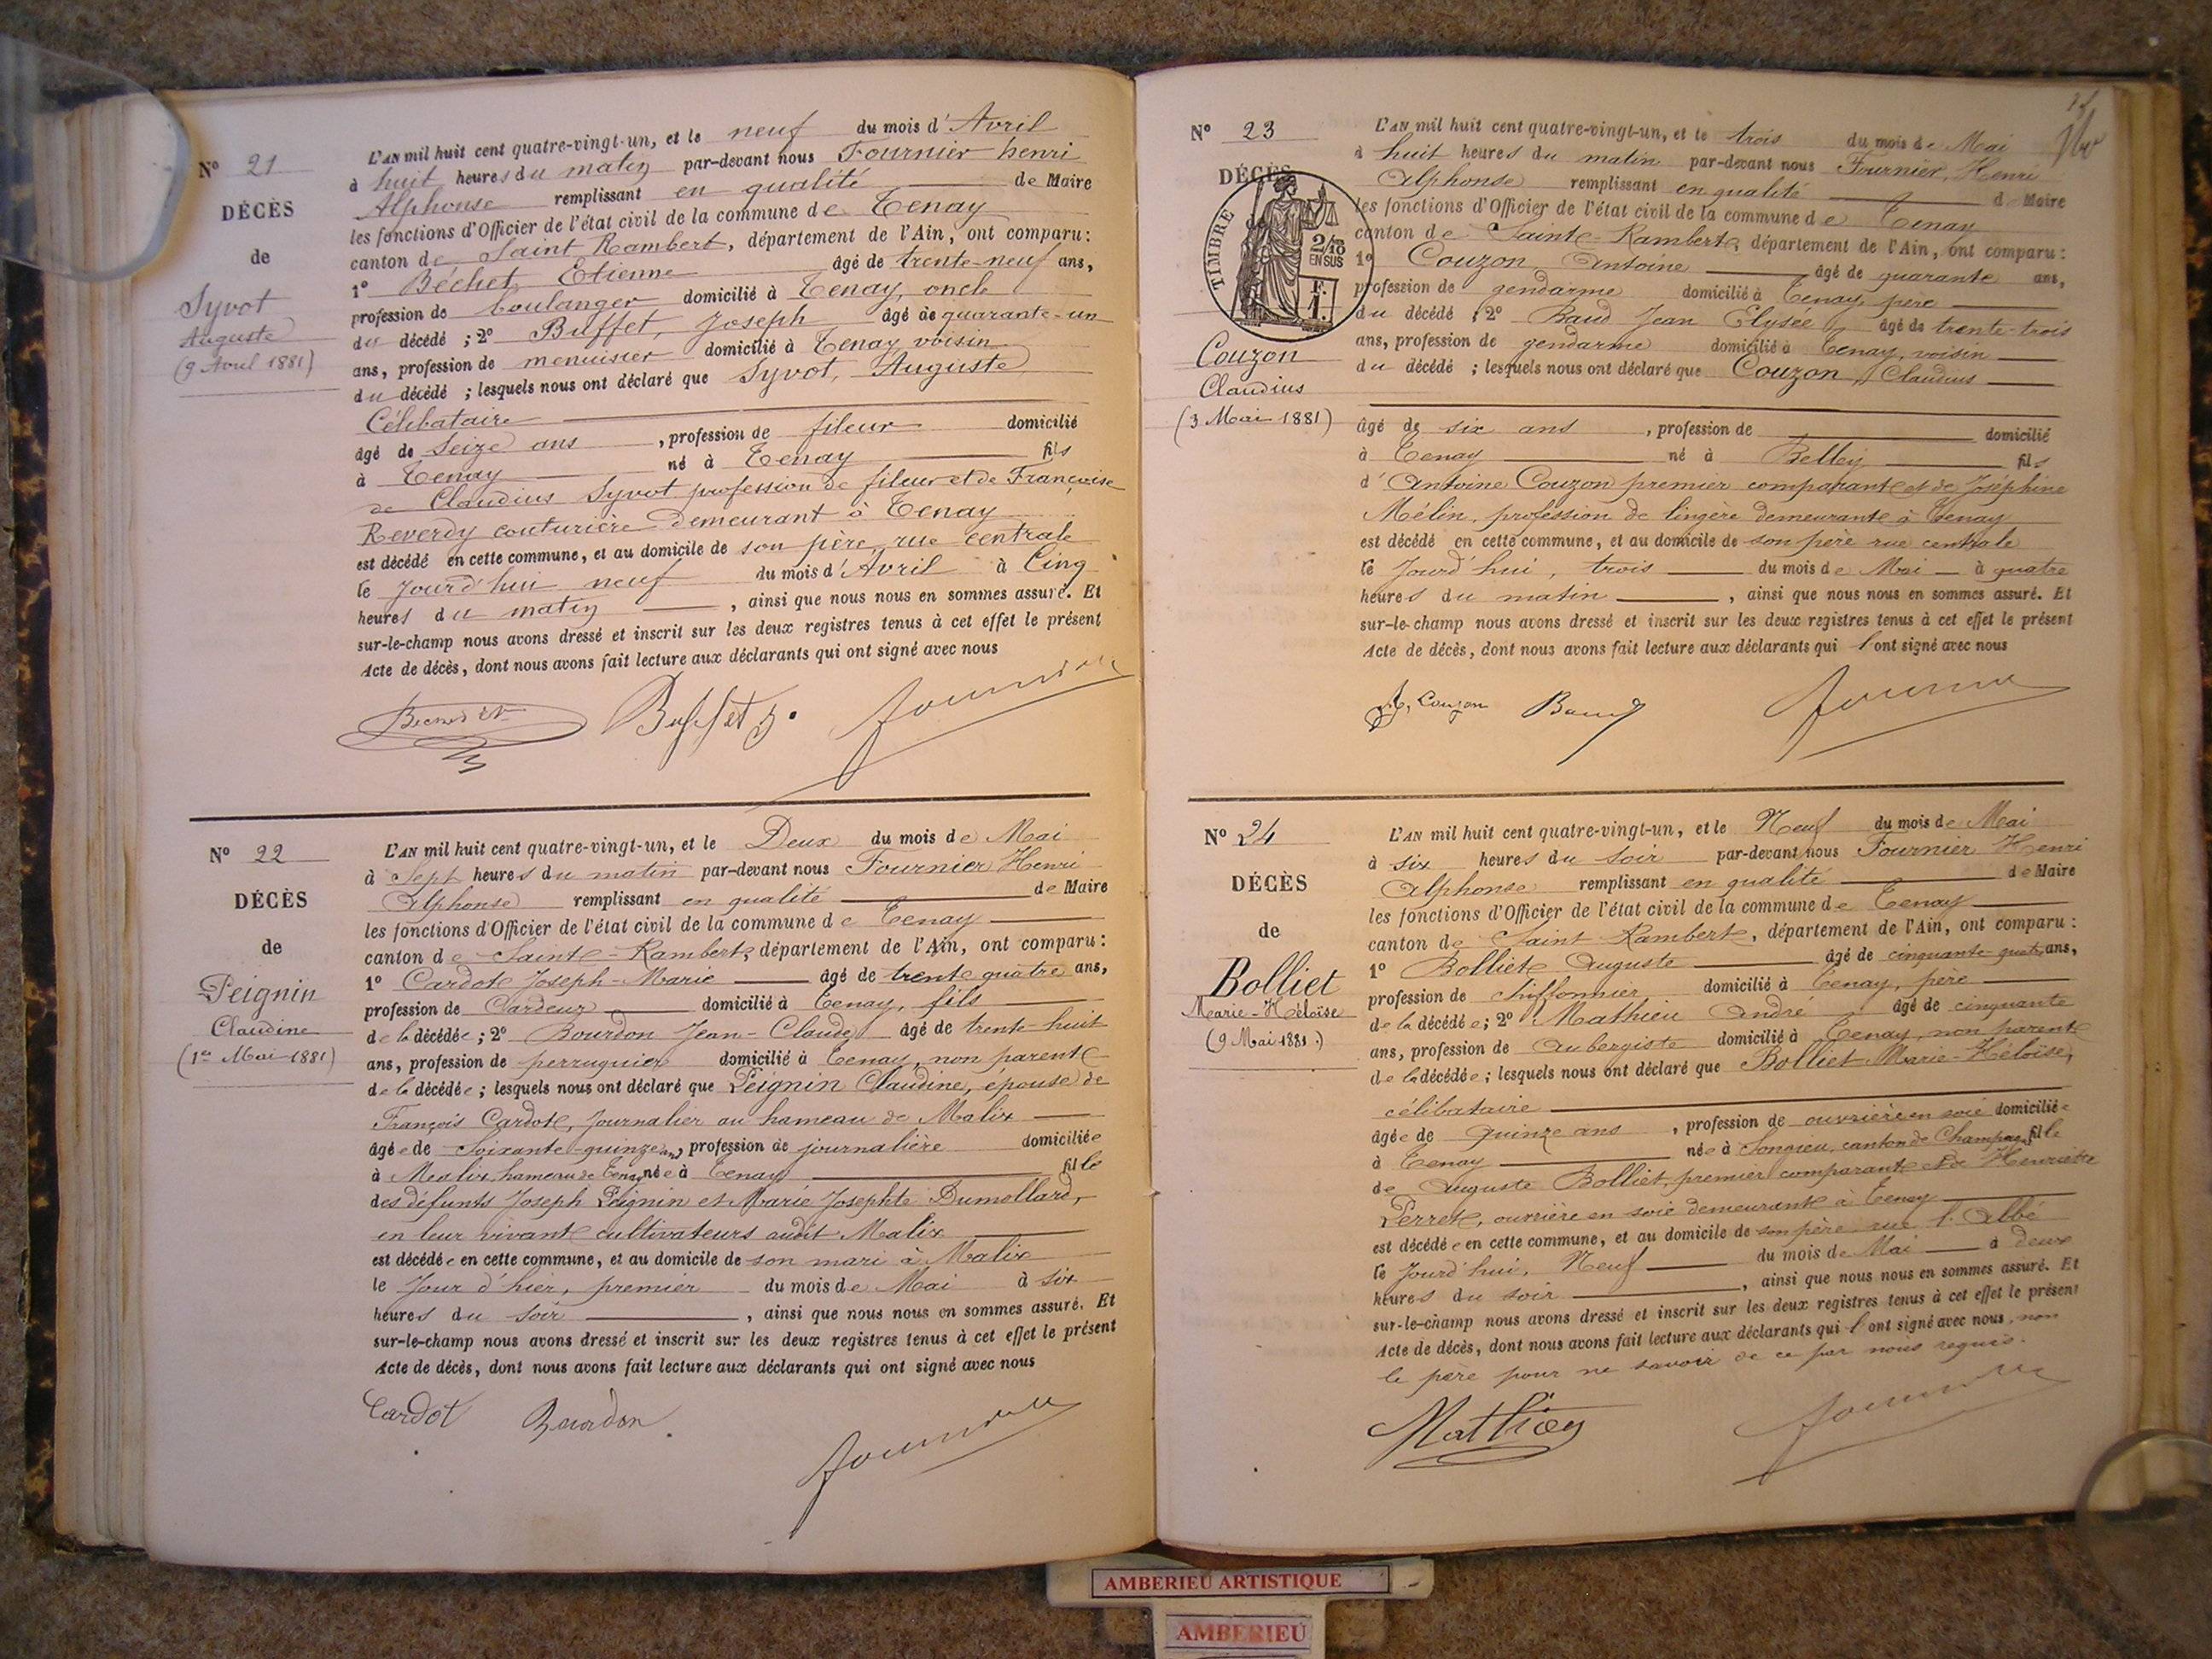 N° 21
DÉCÈS
de
Syvot
Auguste
(9 Avril 1881)
L'AN mil huit cent quatre-vingt-un, et le neuf du mois d'Avril
à huit heures du matin par-devant nous Fournier henri
Alphonse remplissant en qualité de Maire
les fonctions d'Officier de l'état civil de la commune de Tenay
canton de Saint Rambert, département de l'Ain, ont comparu:
1° Béchet, Etienne âgé de trente-neuf ans,
profession de boulanger domicilié à Tenay, oncle
du décédé ; 2° Buffet, Joseph âgé de quarante-un
ans, profession de menuisier domicilié à Tenay, voisin
du décédé ; lesquels nous ont déclaré que Syvot, Auguste
Célibataire
âgé de Seize ans , profession de fileur domicilié
à Tenay né à Tenay fils
de Claudius Syvot profession de fileur et de Françoise
Reverdy couturière demeurant à Tenay
est décédé en cette commune, et au domicile de son père, rue centrale
le jourd'hui neuf du mois d'Avril à Cinq
heures du matin , ainsi que nous nous en sommes assuré. Et
sur-le-champ nous avons dressé et inscrit sur les deux registres tenus à cet effet le présent
Acte de décès, dont nous avons fait lecture aux déclarants qui ont signé avec nous
Buffet J. Fournier
N° 22
DÉCÈS
de
Peignin
Claudine
(1er Mai 1881)
L'AN mil huit cent quatre-vingt-un, et le Deux du mois de Mai
à Sept heures du matin par-devant nous Fournier Henri
Alphonse remplissant en qualité de Maire
les fonctions d'Officier de l'état civil de la commune de Tenay
canton de Saint-Rambert, département de l'Ain, ont comparu:
1° Cardot Joseph-Marie âgé de trente quatre ans,
profession de Cardeur domicilié à Tenay, fils
de la décédée ; 2° Bourdon Jean-Claude âgé de trente-huit
ans, profession de perruquier domicilié à Tenay, non parent
de la décédée ; lesquels nous ont déclaré que Peignin Claudine, épouse de
François Cardot, journalier au hameau de Malix
âgée de Soixante-quinze ans, profession de journalière domiciliée
à Malix, hameau de Tenay née à Tenay fille
des défunts Joseph Peignin et Marie Josephte Dumollard,
en leur vivant cultivateurs audit Malix
est décédée en cette commune, et au domicile de son mari à Malix
le Jour d'hier, premier du mois de Mai à six
heures du soir , ainsi que nous nous en sommes assuré. Et
sur-le-champ nous avons dressé et inscrit sur les deux registres tenus à cet effet le présent
Acte de décès, dont nous avons fait lecture aux déclarants qui ont signé avec nous
Cardot Bourdon Fournier
N° 23
DÉCÈS
TIMBRE
2/10 EN SUS
Couzon
Claudius
(3 Mai 1881)
L'AN mil huit cent quatre-vingt-un, et le trois du mois de Mai
à huit heures du matin par-devant nous Fournier, Henri
Alphonse remplissant en qualité de Maire
les fonctions d'Officier de l'état civil de la commune de Tenay
canton de Saint-Rambert, département de l'Ain, ont comparu:
1° Couzon Antoine âgé de quarante ans,
profession de gendarme domicilié à Tenay, père
du décédé ; 2° Baud Jean Elysée âgé de trente-trois
ans, profession de gendarme domicilié à Tenay, voisin
du décédé ; lesquels nous ont déclaré que Couzon, Claudius
âgé de six ans , profession de domicilié
à Tenay né à Belley fils
d'Antoine Couzon premier comparant et de Joséphine
Mélin, profession de lingère demeurant à Tenay
est décédé en cette commune, et au domicile de son père rue centrale
le Jourd'hui, trois du mois de Mai à quatre
heures du matin , ainsi que nous nous en sommes assuré. Et
sur-le-champ nous avons dressé et inscrit sur les deux registres tenus à cet effet le présent
Acte de décès, dont nous avons fait lecture aux déclarants qui l'ont signé avec nous
Couzon Baud Fournier
N° 24
DÉCÈS
de
Bolliet
Marie-Héloïse
(9 Mai 1881.)
L'AN mil huit cent quatre-vingt-un, et le Neuf du mois de Mai
à six heures du soir par-devant nous Fournier Henri
Alphonse remplissant en qualité de Maire
les fonctions d'Officier de l'état civil de la commune de Tenay
canton de Saint Rambert, département de l'Ain, ont comparu :
1° Bolliet Auguste âgé de cinquante-quatre ans,
profession de Chiffonnier domicilié à Tenay, père
de la décédée ; 2° Mathieu André âgé de cinquante
ans, profession de Aubergiste domicilié à Tenay, non parent
de la décédée ; lesquels nous ont déclaré que Bolliet Marie-Héloïse,
célibataire
âgée de quinze ans , profession de ouvrière en soie domiciliée
à Tenay née à Songieu, canton de Champagne fille
de Auguste Bolliet, premier comparant et de Henriette
Perret, ouvrière en soie demeurant à Tenay
est décédée en cette commune, et au domicile de son père rue l'Abbé
le Jourd'hui, Neuf du mois de Mai à deux
heures du soir , ainsi que nous nous en sommes assuré. Et
sur-le-champ nous avons dressé et inscrit sur les deux registres tenus à cet effet le présent
Acte de décès, dont nous avons fait lecture aux déclarants qui l'ont signé avec nous, non
le père pour ne savoir de ce par nous requis.
Mathieu Fournier
AMBERIEU ARTISTIQUE
AMBERIEU